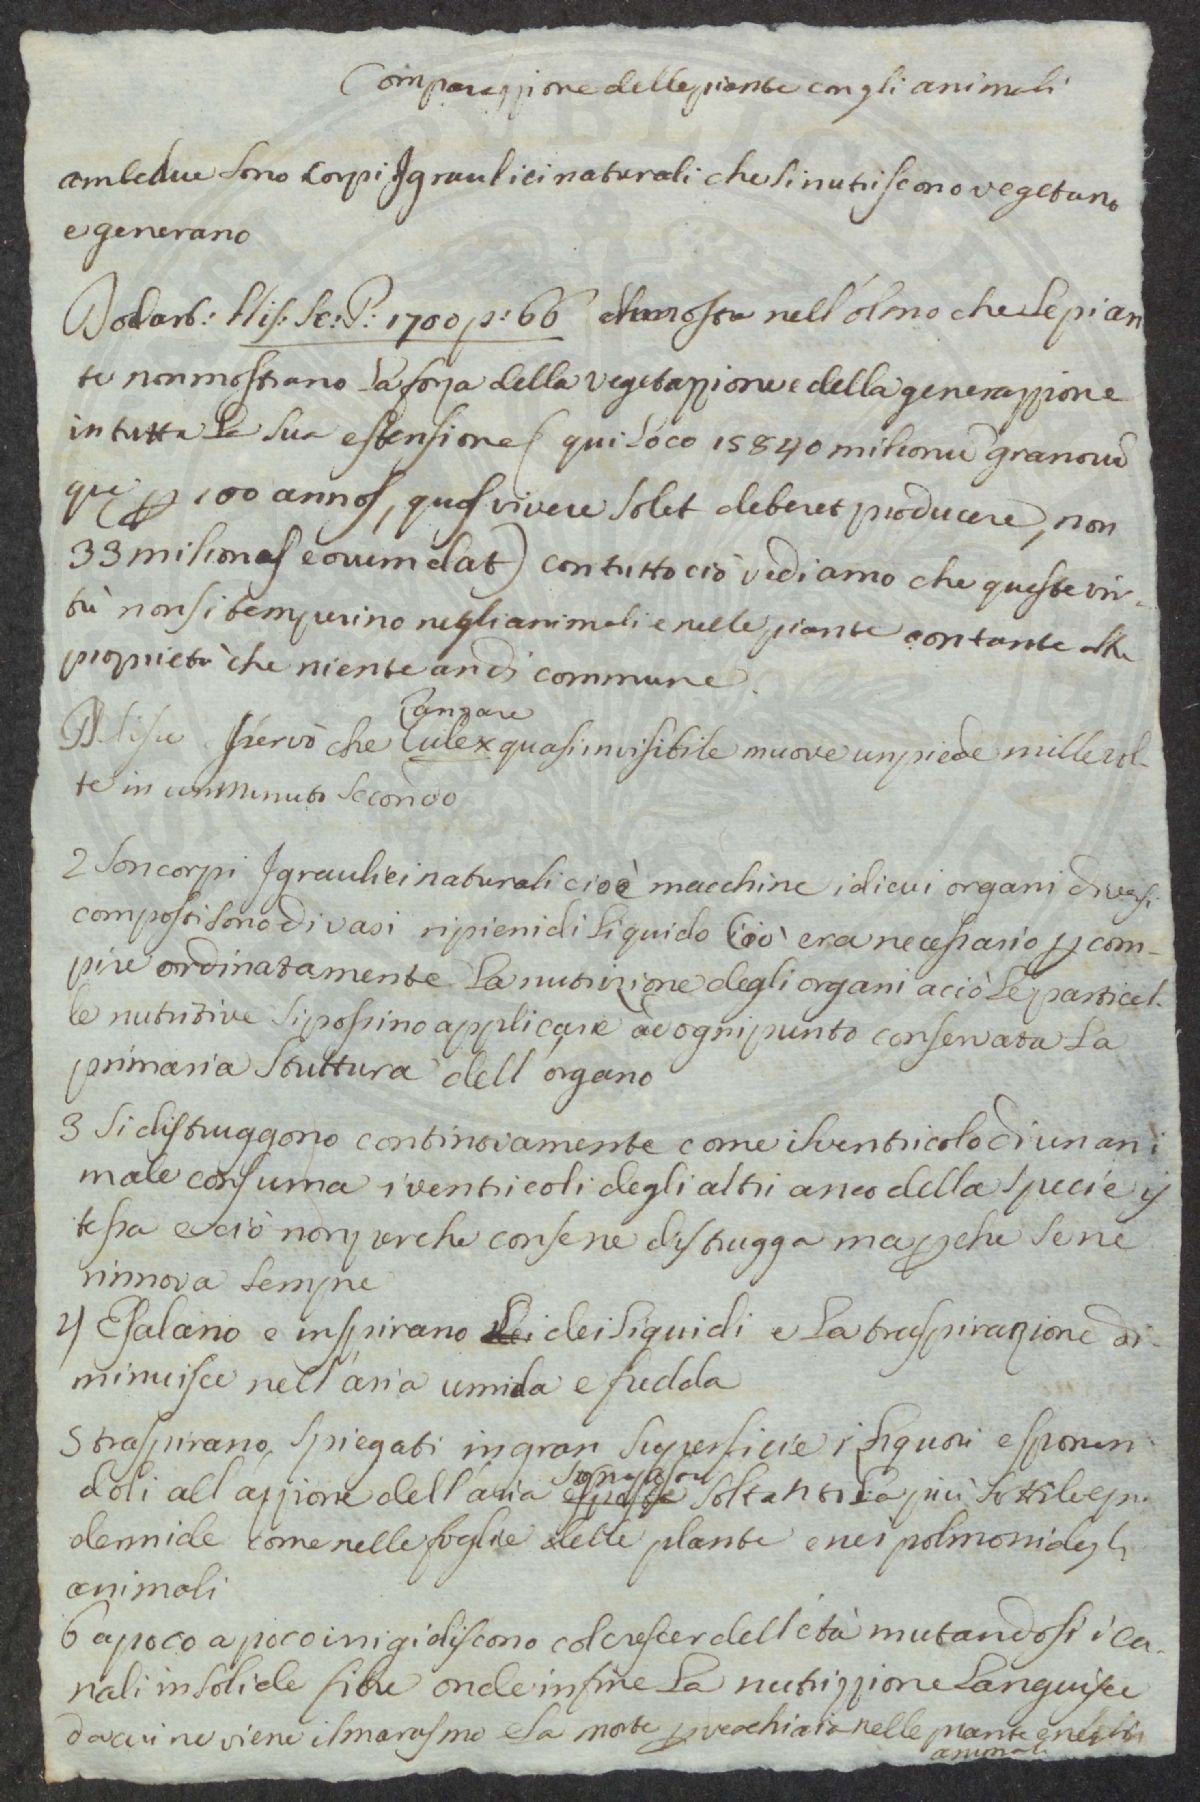 Comparazzione delle piante con gli animali
ambedue sono corpi Igraulici naturali che si nutriscono vegetano
e generano
Dodart: His: Sc: P: 1700 p: 66 dimostra nell'olmo che le pian
te non mostrano la forza della vegetazzione e della generazzione
in tutta la sua estensione (qui loco 15840 milionū granorū
quę p 100 annos, quos vivere solet deberet producere, non
33 miliones eorum dat) con tutto ciò vediamo che queste vir-
tù non si temperino negli animali e nelle piante con tante altre
proprietà che niente an di commune.
Zanzare
Delisle osservò che Culex quasi invisibile muove un piede mille vol-
te in un minuto secondo
2 Son corpi Igraulici naturali cioè macchine i di cui organi diversi
composti sono di vasi ripieni di liquido Ciò era necessario p com-
pire ordinatamente la nutrizione degli organi aciò le particel-
le nutritive si possino applicare ad ogni punto conservata la
primaria struttura dell'organo
3 Si distruggono continovamente come il ventricolo di un ani
male consuma i ventricoli degli altri anco della specie is
tessa e ciò non perche con se ne distrugga ma pche se ne
rinnova sempre
4 Esalano e inspirano dei liquidi e la traspirazione di-
minuisce nell'aria umida e fredda
5 traspirano spiegati in gran superficie i liquori esponen
doli all'azzione dell'aria soltanto la più sottile epi
dermide come nelle foglie delle piante e nei polmoni degli
animali
6 a poco a poco inrigidiscono col crescer dell'età mutandosi i ca-
nali in solide fibre onde infine la nutrizzione languisce
da cui ne viene il marasmo e la morte p vecchiaia nelle piante e negli
animali